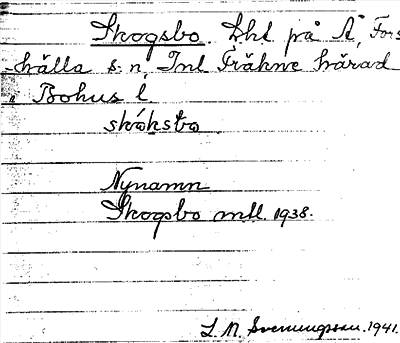 Skogsbo. Lht på Å, Fors
-hälla s:n, Inl Fräkne härad
i Bohus l.
skóksbo
Nynamn
Skogsbo mtl. 1938.
L. M. Svenungsson. 1941.